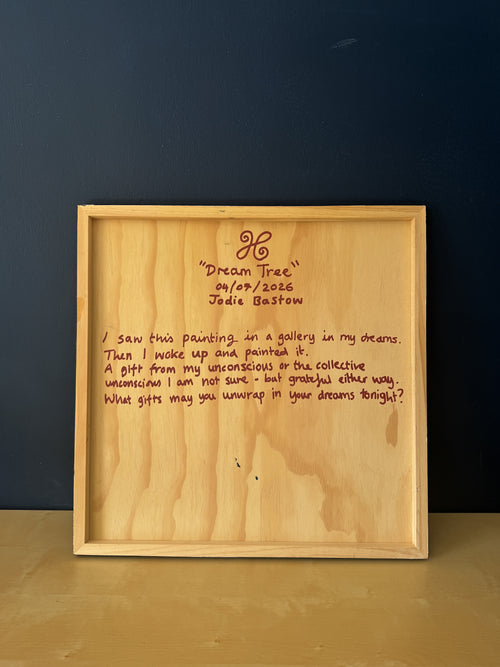 "Dream Tree"
04/07/2026
Jodie Bastow
I saw this painting in a gallery in my dreams.
Then I woke up and painted it.
A gift from my unconscious or the collective
unconscious I am not sure - but grateful either way.
What gifts may you unwrap in your dreams tonight?